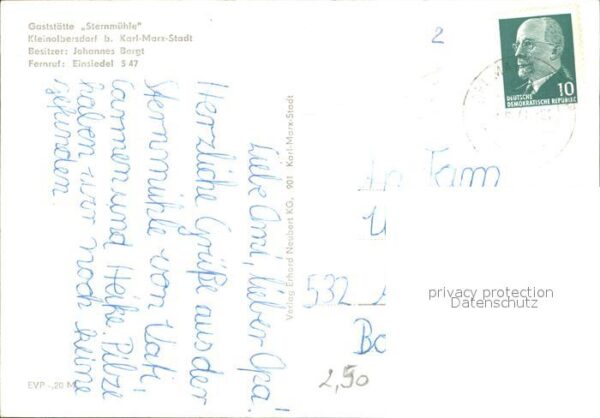 Gaststätte „Sternmühle"
Kleinolbersdorf b. Karl-Marx-Stadt
Besitzer: Johannes Bergt
Fernruf: Einsiedel 5 47
Liebe Omi, lieber Opa!
Herzliche Grüße aus der
Sternmühle von Vati,
und Heike. Pilze
haben wir noch keine
gefunden.
EVP -,20 M
Verlag Erhard Neubert KG, 901 Karl-Marx-Stadt
2
10
DEUTSCHE
DEMOKRATISCHE REPUBLIK
Fam
532
2,50
privacy protection
Datenschutz